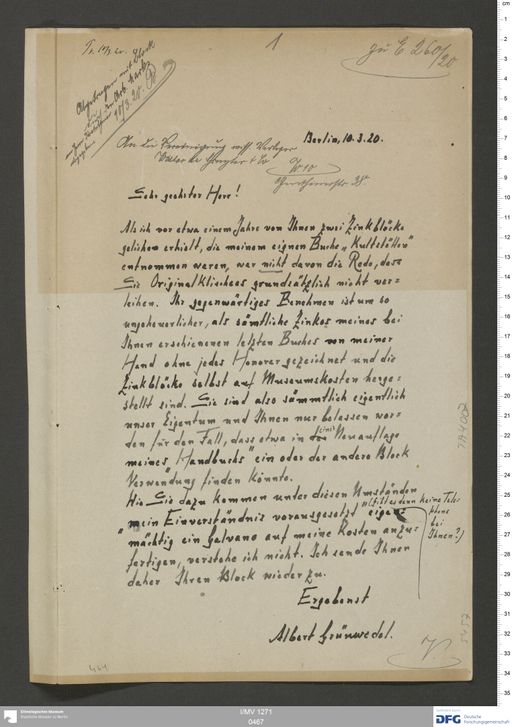 1
zu E 260/20
Berlin, 10.3.20.
An die Vereinigung wiss. Verleger
Walter de Gruyter & Co
W 10
Genthinerstr. 38.
Sehr geehrter Herr!
Als ich vor etwa einem Jahre von Ihnen zwei Zinkblöcke
geliehen erhielt, die meinem eignen Buche „Kultstätten"
entnommen waren, war nicht davon die Rede, dass
Sie Originalklischees grundsätzlich nicht ver=
leihen. Ihr gegenwärtiges Benehmen ist um so
ungeheuerlicher, als sämtliche Zinkos meines bei
Ihnen erschienenen letzten Buches von meiner
Hand ohne jedes Honorar gezeichnet und die
Zinkblöcke selbst auf Museumskosten herge=
stellt sind. Sie sind also sämmtlich eigentlich
unser Eigentum und Ihnen nur belassen wor=
den für den Fall, dass etwa in einer Neuauflage
meines „Handbuchs" ein oder der andere Block
Verwendung finden könnte.
Wie Sie dazu kommen unter diesen Umständen
„mein Einverständnis vorausgesetzt" eigen=
mächtig ein Galvano auf meine Kosten anzu=
fertigen, verstehe ich nicht. Ich sende Ihnen
daher Ihren Block wieder zu.
(Gibt es denn keine Tele=
phone
bei
Ihnen?)
Ergebenst
Albert Grünwedel.
464
Ethnologisches Museum
Staatliche Museen zu Berlin
I/MV 1271
0467
DFG
Deutsche
Forschungsgemeinschaft